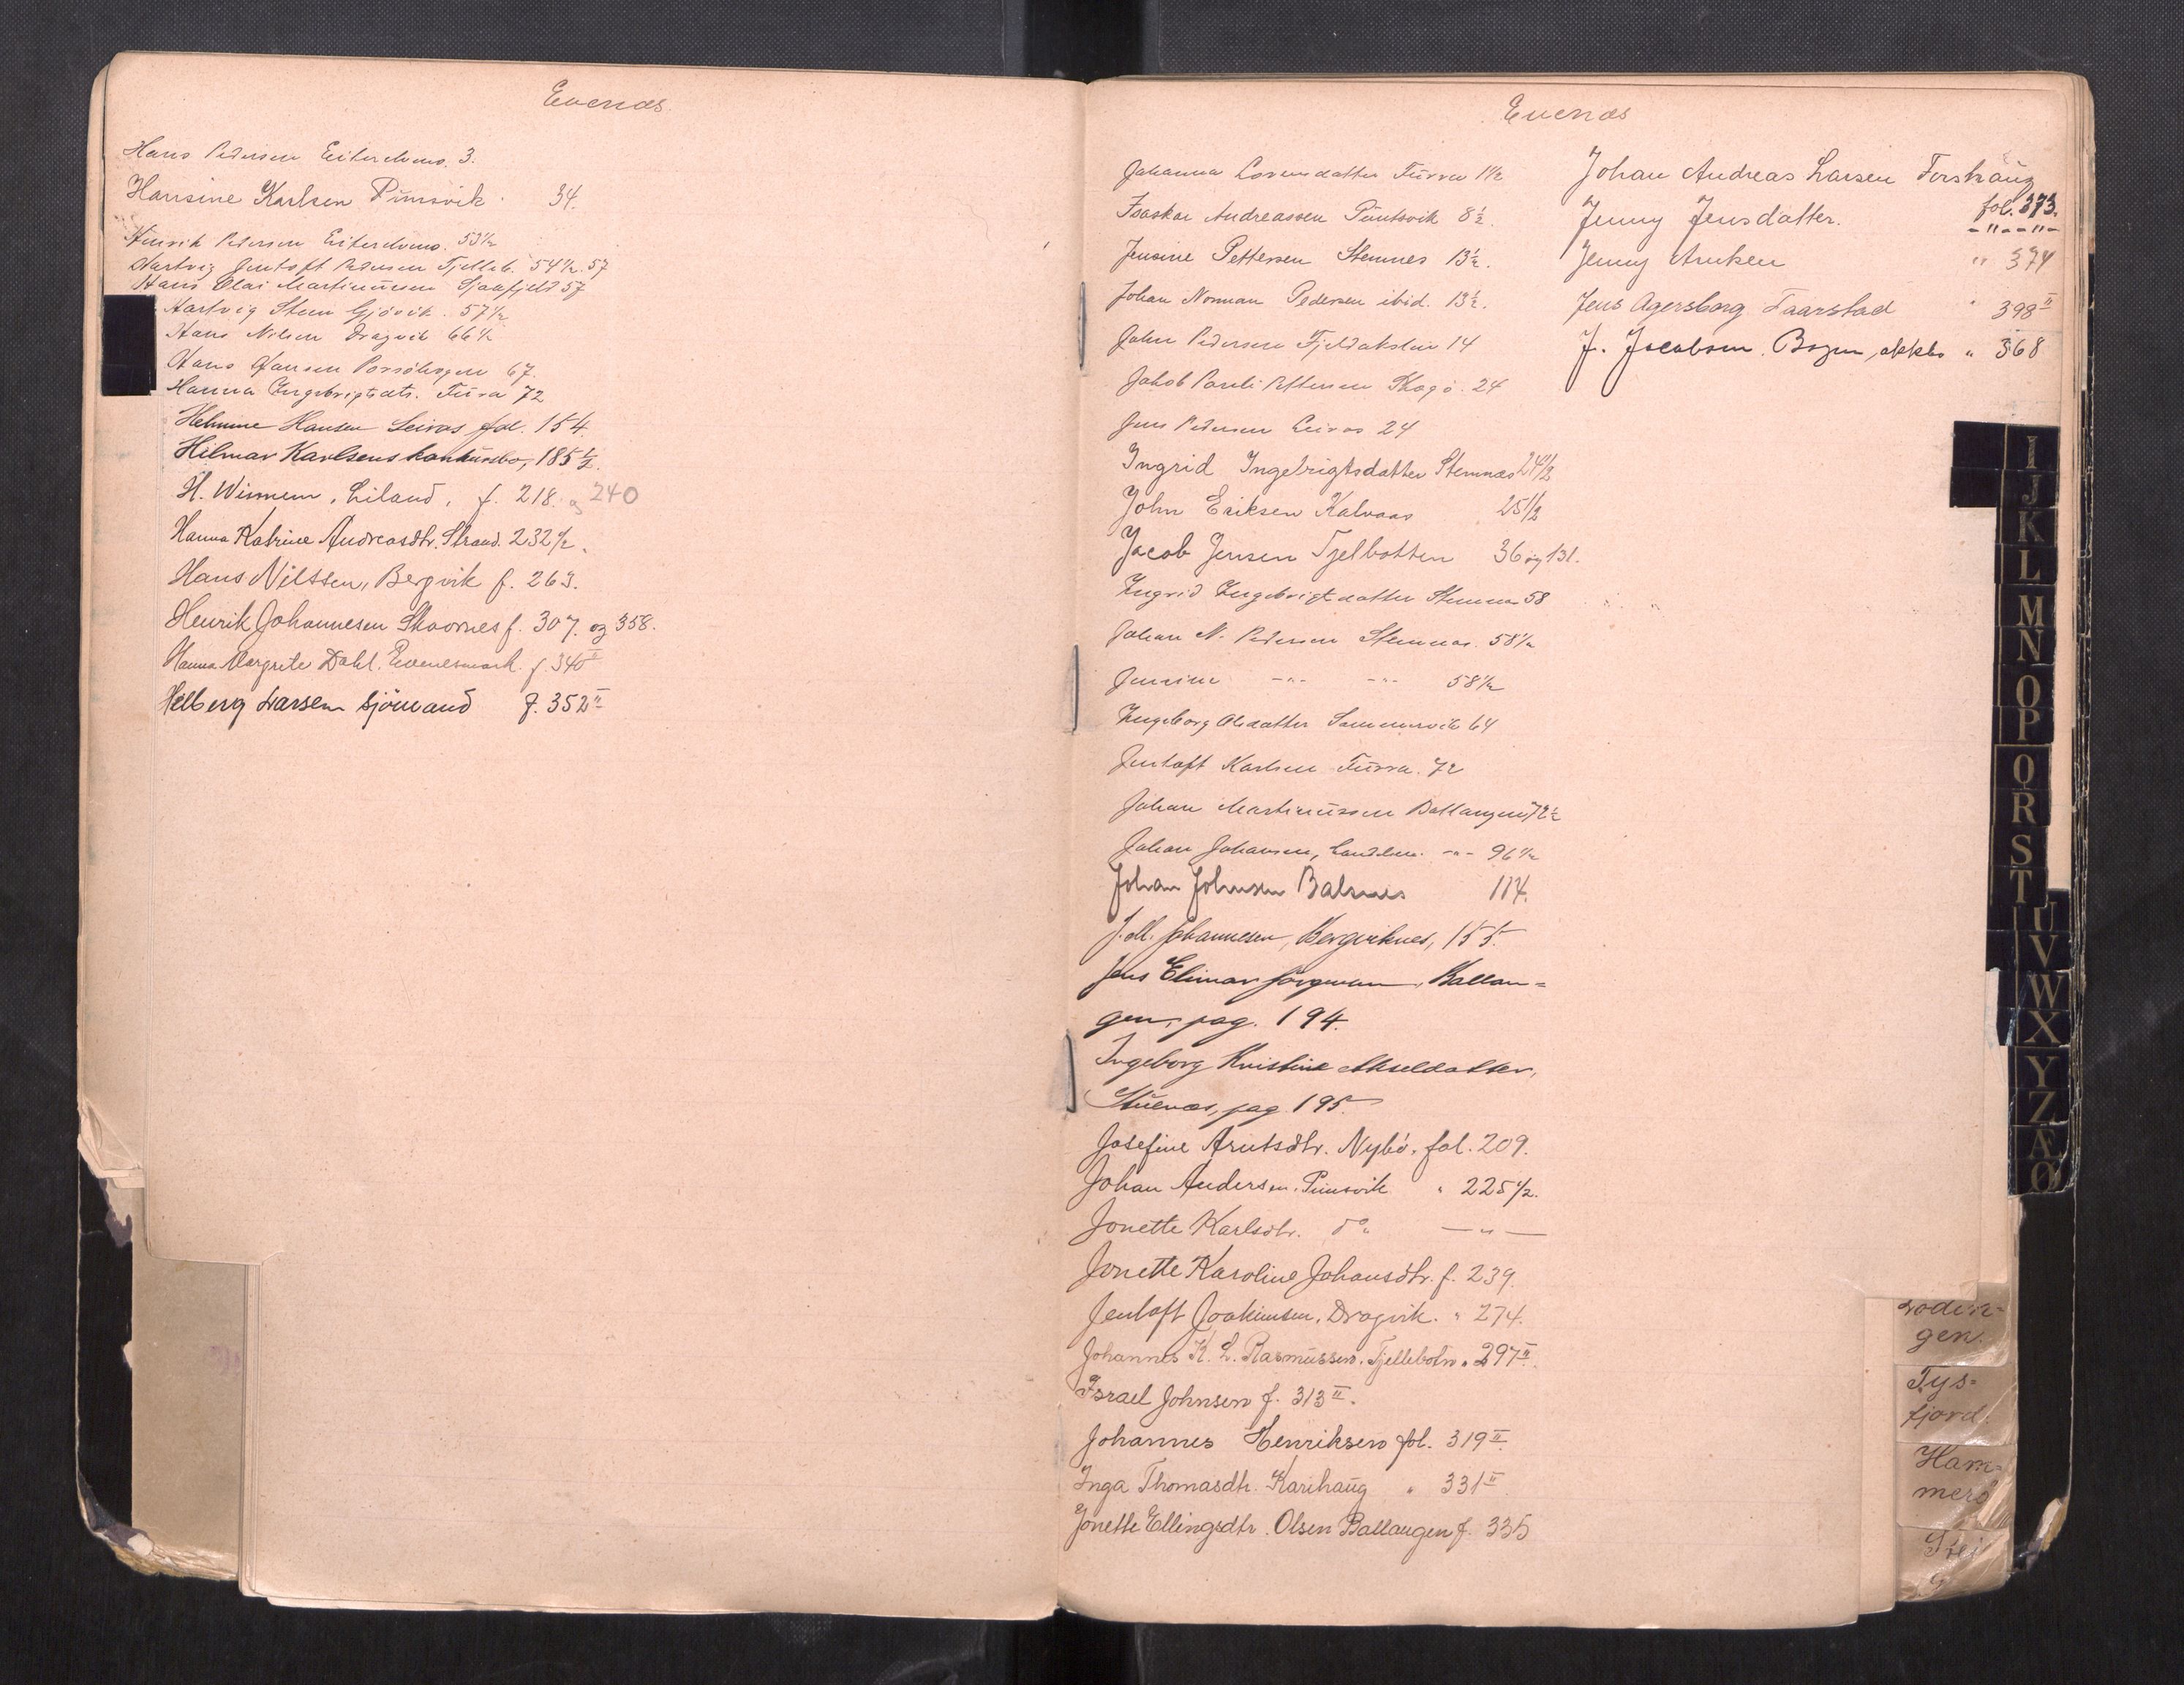 Evenæs
Hans Pedersen Eiterdums. 3.
Hansine Karlsen Pünsvik 34.
Hinrik Pedersen Eiterdums. 53½
Hartvig Jentoft Pedersen Fjelleb. 54½. 57
Hans Olai Martinüssen Sjaafjeld 57
Hartvig Steen Gjövik. 57½
Hans Nilsen Dragvik 66½
Hans Hansen 67.
Hanna Ingebrigtsdtr. Fürra 72
Helmine Hansen Leiros fol. 154.
Hilmar Karlsens konkürsbo, 185½.
H. Winnem, Liland, f. 218. og 240
Hanna Katrine Andreasdtr. Strand. 232½.
Hans Nilssen, Bergvik f. 263.
Henrik Johannesen Skovnes f. 307. og 358.
Hanna Margrete Dahl, Evenesmark. f. 340 II
Helberg Larsen Sjömand f. 352 II
Evenæs
Johanna Lorensdatter Fürra 1½
Isaskar Andreassen Püntsvik 8½.
Jensine Pettersen Stemnes 13½.
Johan Norman Pedersen ibid. 13½.
John Pedersen Fjeldakslen 14
Jakob Pauli Pettersen Skogö. 24
Jens Pedersen Leiros 24
Ingrid Ingebrigtsdatter Stemnæs 24½
John Eriksen Kalvaas 25½
Jacob Jensen Fjelbotten 36 og 131.
Ingrid Ingebrigtsdatter Stemnæs 58
Johan N. Pedersen Stemnæs. 58½
Jensine -"- -"- 58½
Ingeborg Olsdatter Sommervik 64
Jentoft Karlsen Fürra. 72
Johan Martinüssen Ballangen 72½
Johan Johansen, Landsem. -"- 96½
Johan Johnsen Balsnes 114.
J. M. Johannesen, Bergviknes, 155.
Jens Elimar Jörgensen, Ballan=
gen, pag. 194.
Ingeborg Kristine Akseldatter,
Stuenæs, pag. 195.
Josefine Arntsdtr. Nybö, fol. 209.
Johan Andersen. Pünsvik " 225½.
Jonette Karlsdtr. do " —"—
Jonette Karoline Johansdtr. f. 239.
Jentoft Joakimsen, Dragvik. " 274.
Johannes K. L. Rasmüssen. Fjellebotn " 297 II.
Israel Johnsen f. 313 II.
Johannes Henriksen fol. 319 II.
Inga Thomasdtr. Karihaüg " 331 II
Jonette Ellingsdtr. Olsen Ballangen f. 335
Johan Andreas Larsen Forshaüg
fol. 373.
Jenny Jensdatter. -"--"-
Jenny Arntzen " 374
Jens Agersborg Taarstad " 398 II
J. Jacobsen. Bogen, " 368
I
J
K
L
M
N
O
P
Q
R
S
T
U
V
W
X
Y
Z
Æ
Ø
Lödin=
gen.
Tys=
fjord.
Ham=
merö